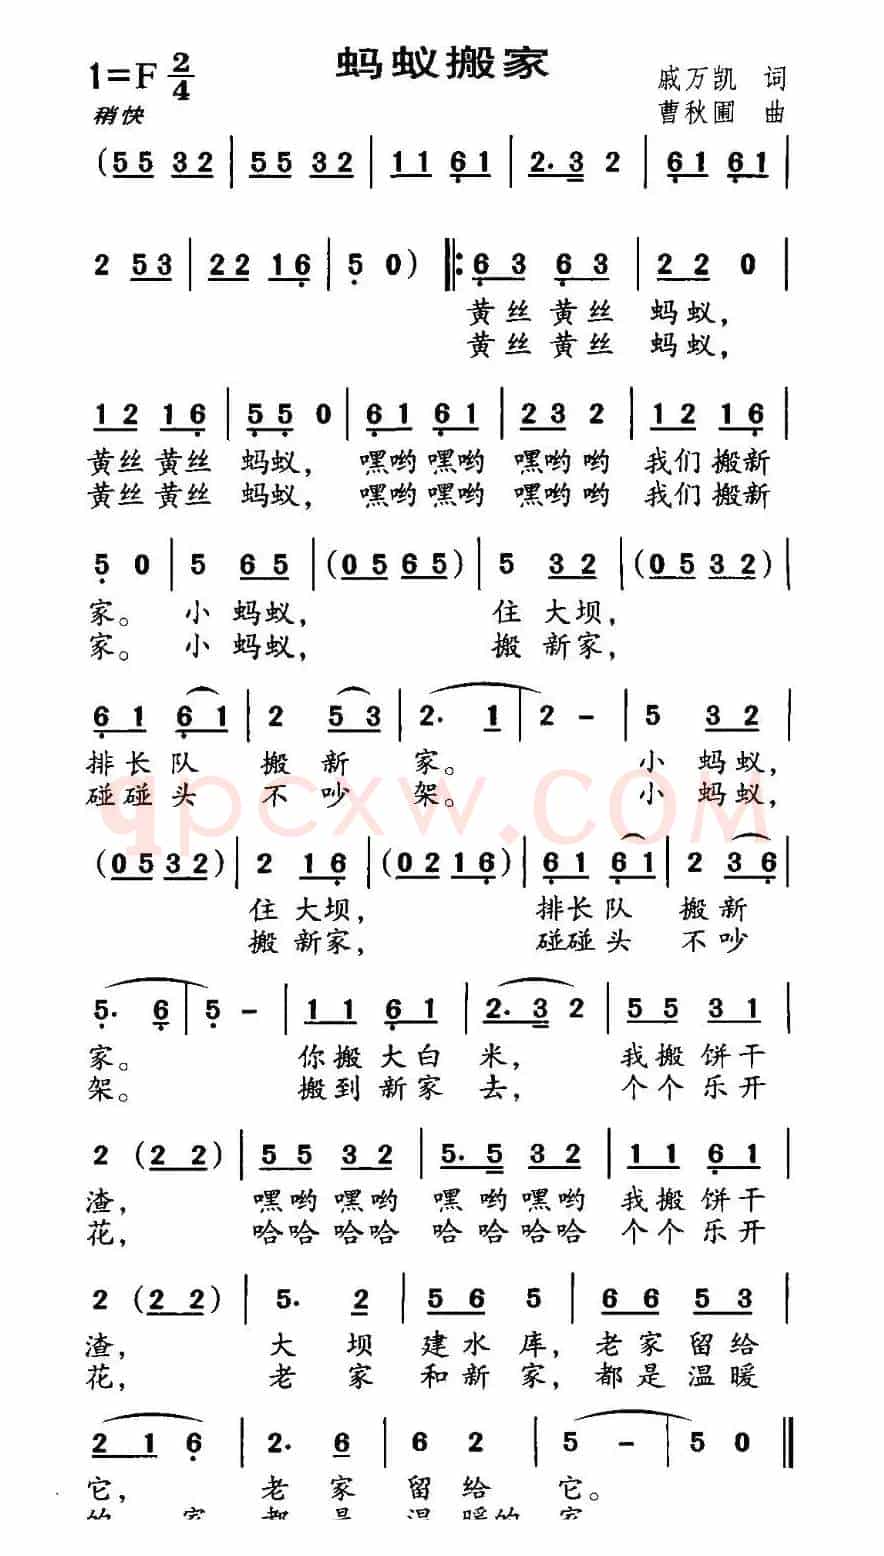 蚂蚁搬家
1=F 2/4
戚万凯 词
稍快
曹秋圃 曲
(55 32 | 55 32 | 11 61 | 2. 3 2 | 61 61 |
2 53 | 22 16 | 5 0) ‖: 63 63 | 22 0 |
黄丝 黄丝 蚂蚁,
黄丝 黄丝 蚂蚁,
12 16 | 55 0 | 61 61 | 23 2 | 12 16 |
黄丝 黄丝 蚂蚁, 嘿哟 嘿哟 嘿哟 哟 我们 搬新
黄丝 黄丝 蚂蚁, 嘿哟 嘿哟 嘿哟 哟 我们 搬新
5 0 | 5 65 | (05 65) | 5 32 | (05 32) |
家。 小 蚂蚁, 住 大坝,
家。 小 蚂蚁, 搬 新家,
61 61 | 2 53 | 2. 1 | 2 - | 5 32 |
排长 队 搬 新 家。 小 蚂蚁,
碰碰 头 不 吵 架。 小 蚂蚁,
qpcxw.COM
(05 32) | 2 16 | (02 16) | 61 61 | 2 36 |
住 大坝, 排长 队 搬 新
搬 新家, 碰碰 头 不 吵
5. 6 | 5 - | 11 61 | 2. 3 2 | 55 31 |
家。 你搬 大白 米, 我搬 饼干
架。 搬到 新家 去, 个个 乐开
2 (22) | 55 32 | 5. 5 32 | 11 61 |
渣, 嘿哟 嘿哟 嘿 哟 嘿哟 我搬 饼干
花, 哈哈 哈哈 哈 哈 哈哈 个个 乐开
2 (22) | 5. 2 | 56 5 | 66 53 |
渣, 大 坝 建水 库, 老家 留给
花, 老 家 和新 家, 都是 温暖
2 1 6 | 2. 6 | 6 2 | 5 - | 5 0 ‖
它, 老 家 留 给 它。
的 家 都 是 温 暖的 家